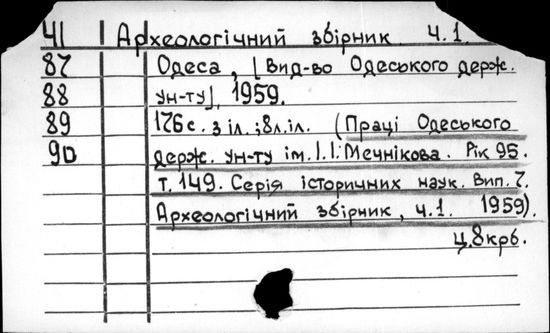 41 Археологічний збірник ч.1.
87 Одеса, [Вид-во Одеського держ.
88 ун-ту], 1959.
89 176с. з іл.; 8л.іл. (Праці Одеського
90 держ. ун-ту ім. І.І. Мечнікова. Рік 95.
т. 149. Серія історичних наук. Вип. 7.
Археологічний збірник, ч.1. 1959).
ц. 8крб.